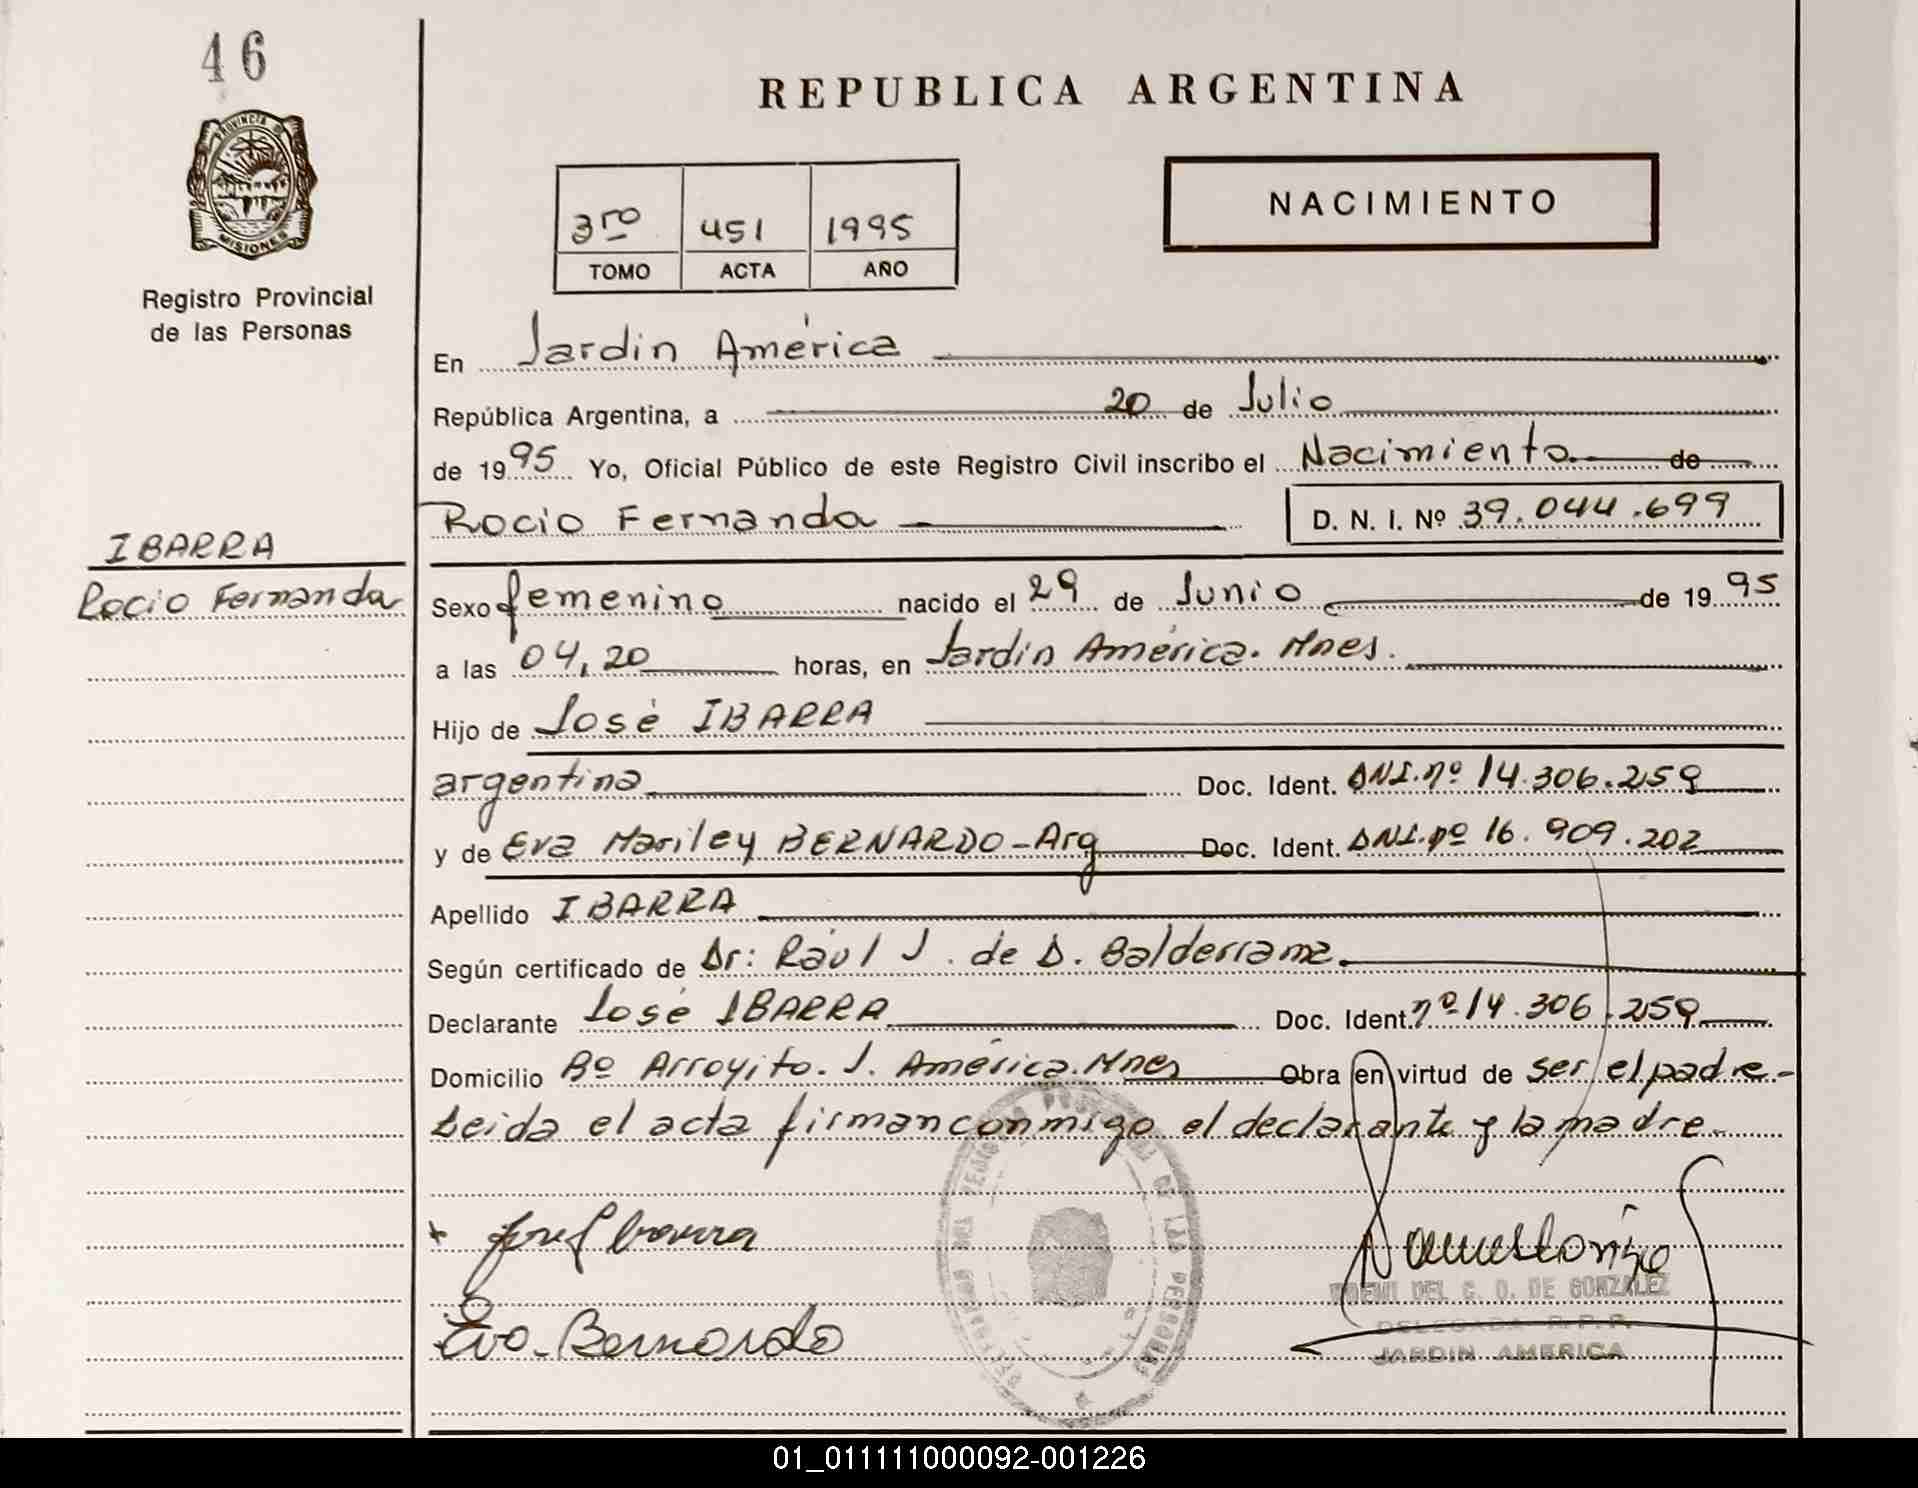 46
PROVINCIA DE
MISIONES
Registro Provincial
de las Personas
IBARRA
Rocio Fernanda
REPUBLICA ARGENTINA
3ro 451 1995
TOMO ACTA AÑO
NACIMIENTO
En Jardin América
República Argentina, a 20 de Julio
de 1995 Yo, Oficial Público de este Registro Civil inscribo el Nacimiento de
Rocio Fernanda D. N. I. Nº 39.044.699
Sexo femenino nacido el 29 de Junio de 1995
a las 04,20 horas, en Jardin América. Mnes.
Hijo de José IBARRA
argentina Doc. Ident. DNI.nº 14.306.259
y de Eva Mariley BERNARDO-Arg Doc. Ident. DNI.nº 16.909.202
Apellido IBARRA
Según certificado de Dr: Raúl J. de D. Balderrama.
Declarante José IBARRA Doc. Ident. nº 14.306.259
Domicilio Bº Arroyito. J. América. Mnes Obra en virtud de ser el padre-
Leida el acta firman conmigo el declarante y la madre.
José Ibarra
Eva Bernardo
NOEMI DEL C. D. DE GONZALEZ
DELEGADA R. P. P.
JARDIN AMERICA
01_011111000092-001226